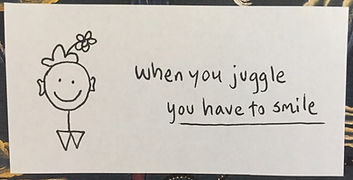 when you juggle
you have to smile